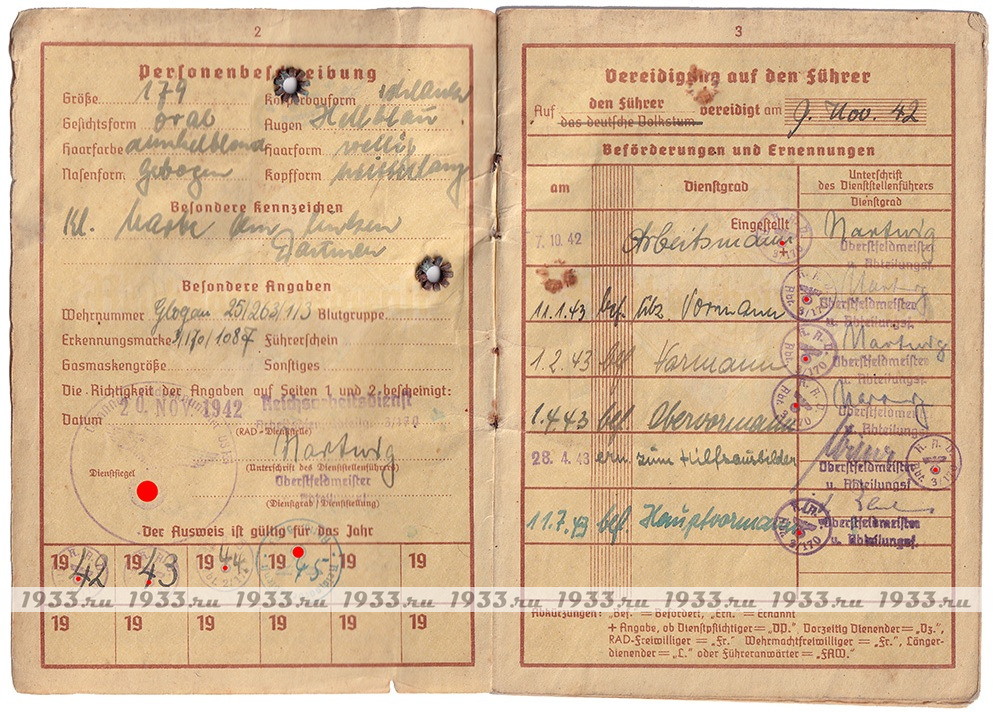 2
Personenbeschreibung
Größe 179 Körperbauform schlank
Gesichtsform oval Augen Hellblau
Haarfarbe dunkelblond Haarform wellig
Nasenform Gebogen Kopfform mittellang
Besondere Kennzeichen
Kl. Narbe am linken
Besondere Angaben
Wehrnummer Glogau 25/263/1/3 Blutgruppe
Erkennungsmarke 3/170/1087 Führerschein
Gasmaskengröße Sonstiges
Die Richtigkeit der Angaben auf Seiten 1 und 2 bescheinigt:
Datum 20. Nov. 1942 Reichsarbeitsdienst
(RAD-Dienststelle)
Hartwig
Dienstsiegel (Unterschrift des Dienststellenführers)
Oberstfeldmeister
Abteilung
(Dienstgrad/Dienststellung)
Der Ausweis ist gültig für das Jahr
1942 1943 1944 19 45 19 19
19 19 19 19 19 19
3
Vereidigung auf den Führer
Auf den Führer vereidigt am 9. Nov. 42
das deutsche Volkstum
Beförderungen und Ernennungen
am Dienstgrad Unterschrift des Dienststellenführers
Dienstgrad
7. 10. 42 Eingestellt Arbeitsmann Hartwig
Oberstfeldmeister
u. Abteilungsf.
11.1.43 bef. Vormann Hartwig
Oberstfeldmeister
u. Abteilungsf.
1.2.43 bef. Vormann Hartwig
Oberstfeldmeister
u. Abteilungsf.
1.4.43 bef. Obervormann Hartwig
Oberstfeldmeister
u. Abteilungsf.
28. 4. 43 ern. zum Hilfsausbilder
Oberstfeldmeister
u. Abteilungsf.
11.7.43 bef. Hauptvormann
Oberstfeldmeister
u. Abteilungsf.
Abkürzungen: „Bef.“ = Befördert, „Ern.“ = Ernannt
+ Angabe, ob Dienstpflichtiger = „DP.“ Vorzeitig Dienender = „Dz.“,
RAD-Freiwilliger = „Fr.“ Wehrmachtfreiwilliger = „Fr.“, Länger-
dienender = „L.“ oder Führeranwärter = „FAW.“
1933.ru 1933.ru 1933.ru 1933.ru 1933.ru 1933.ru 1933.ru 1933.ru 1933.ru